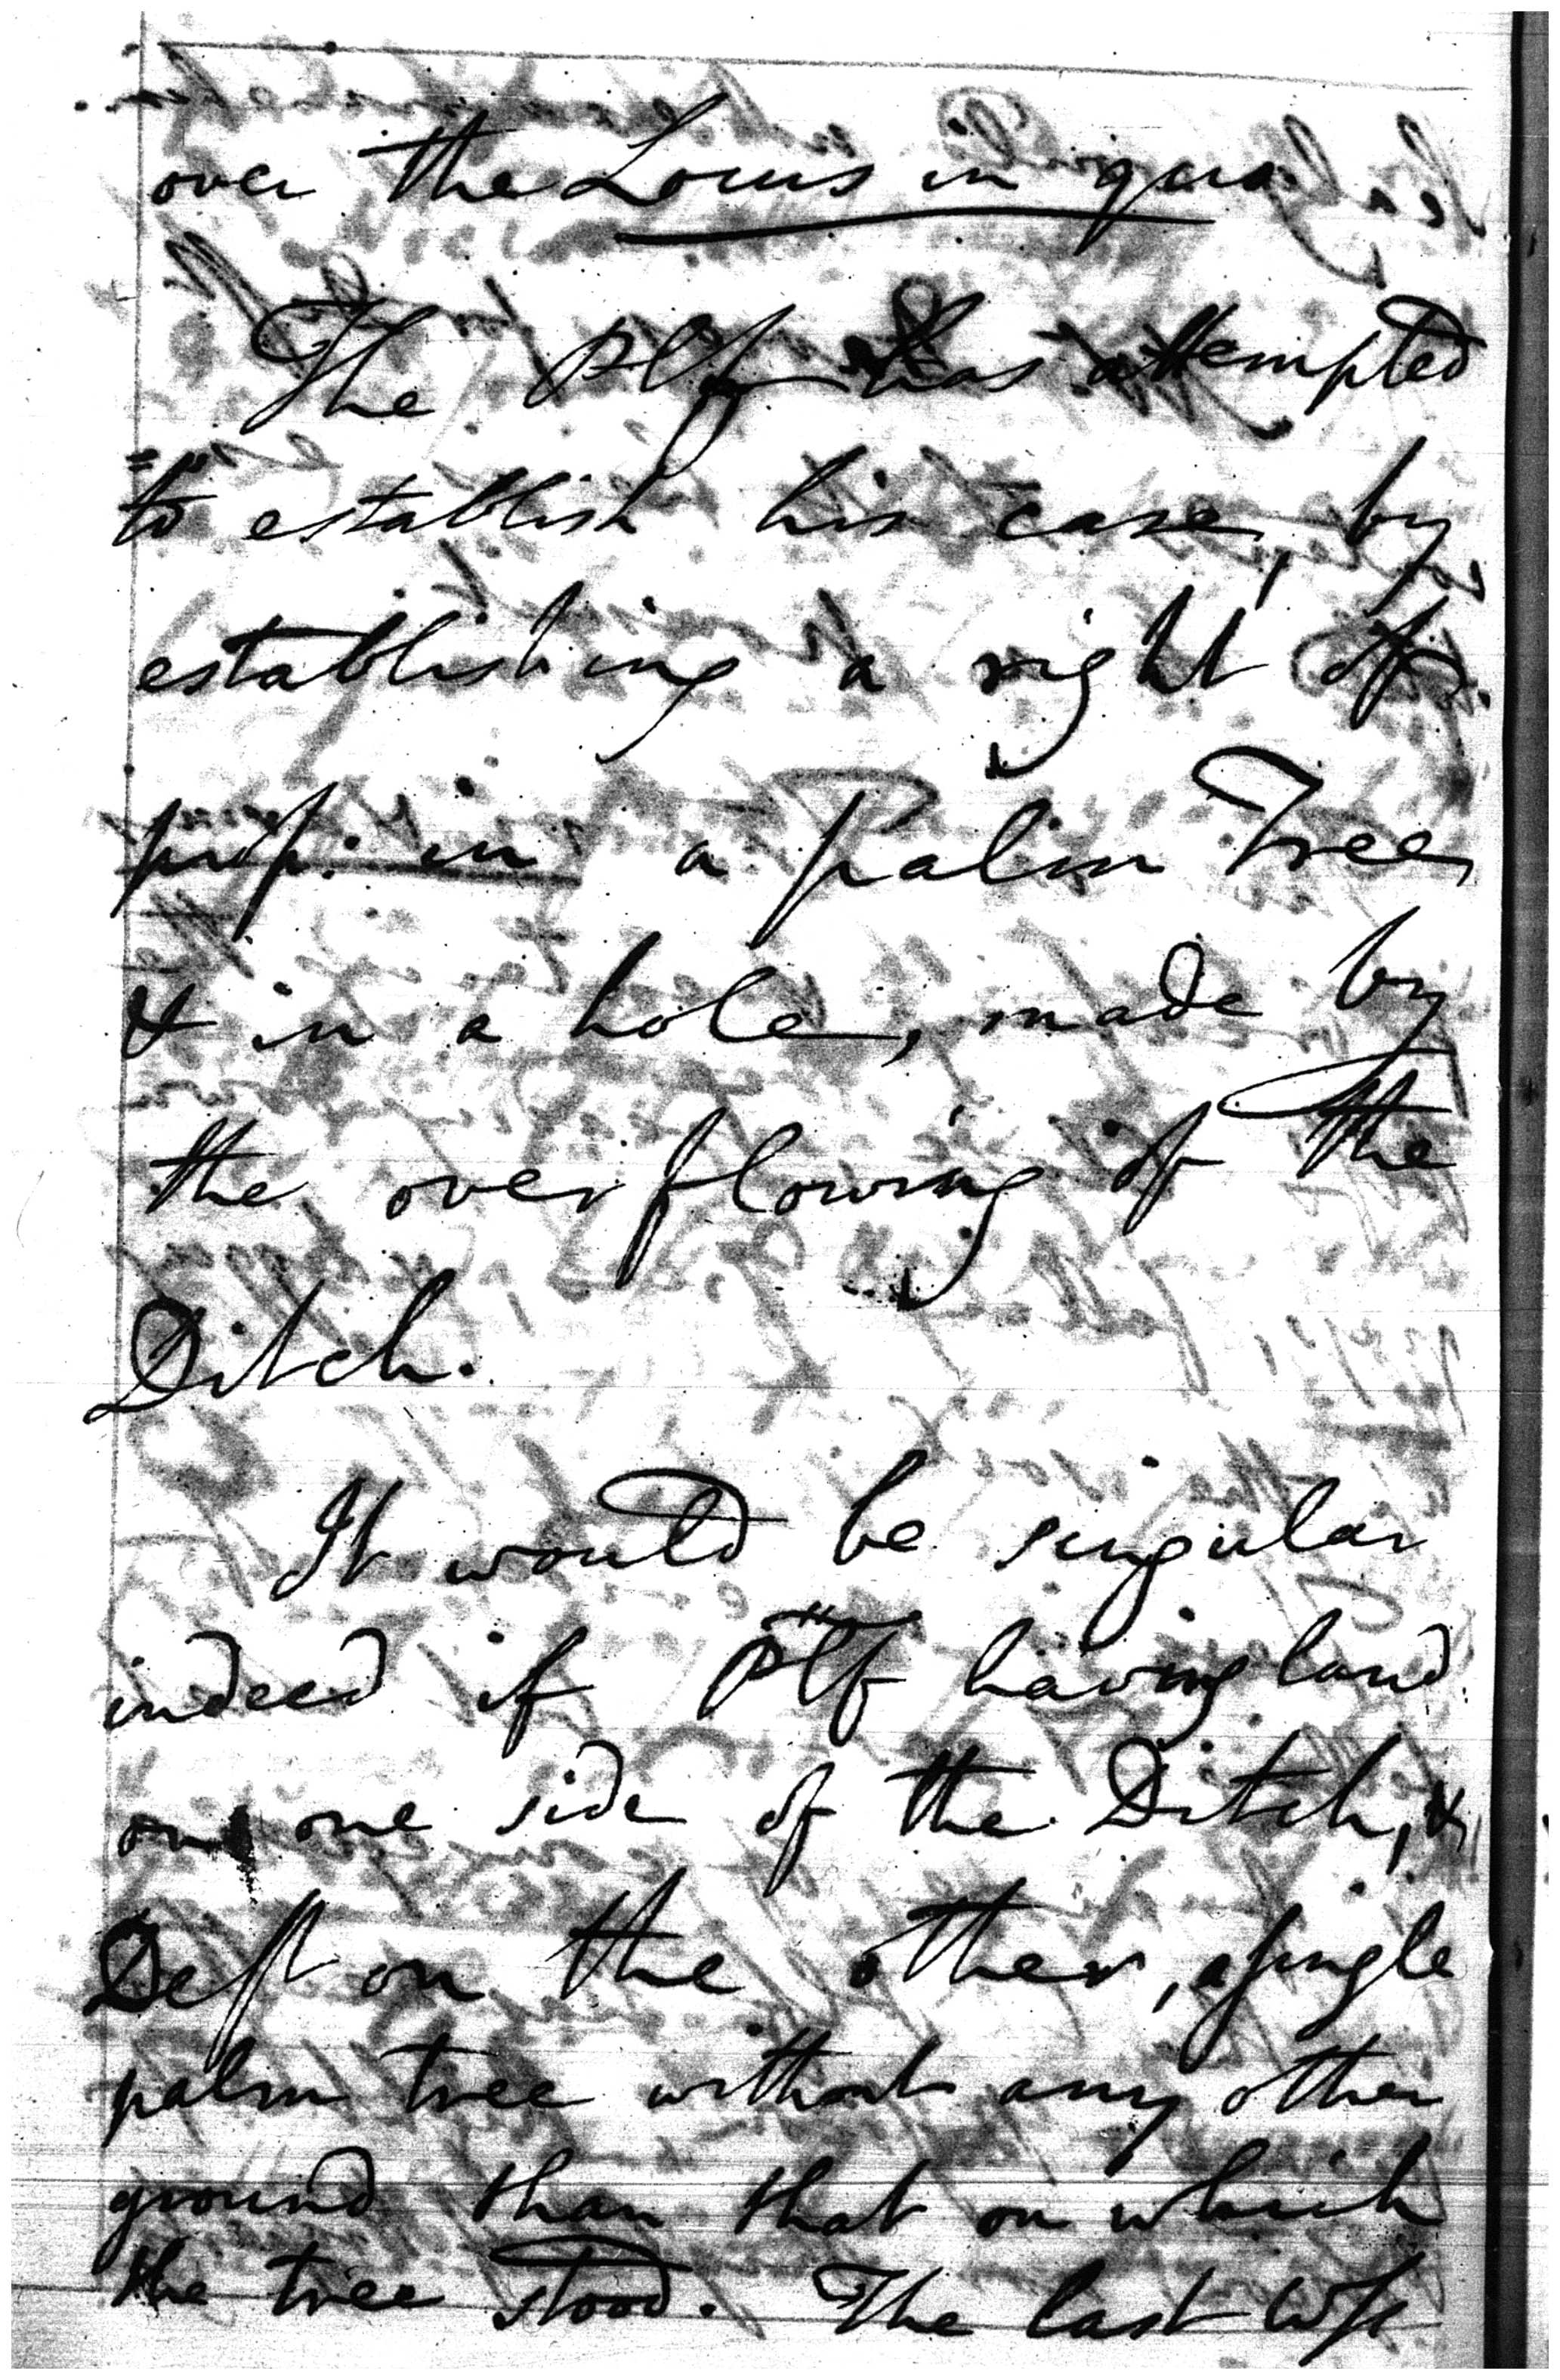 over the Locus in quo
The Plff has attempted
to establish his case, by
establishing a right of
prop: in a palm Tree,
& in a hole, made by
the overflowing of the
Ditch.
It would be singular
indeed if Plff having land
on one side of the Ditch, &
Deft on the other, a single
palm tree without any other
ground than that on which
the tree stood. The last